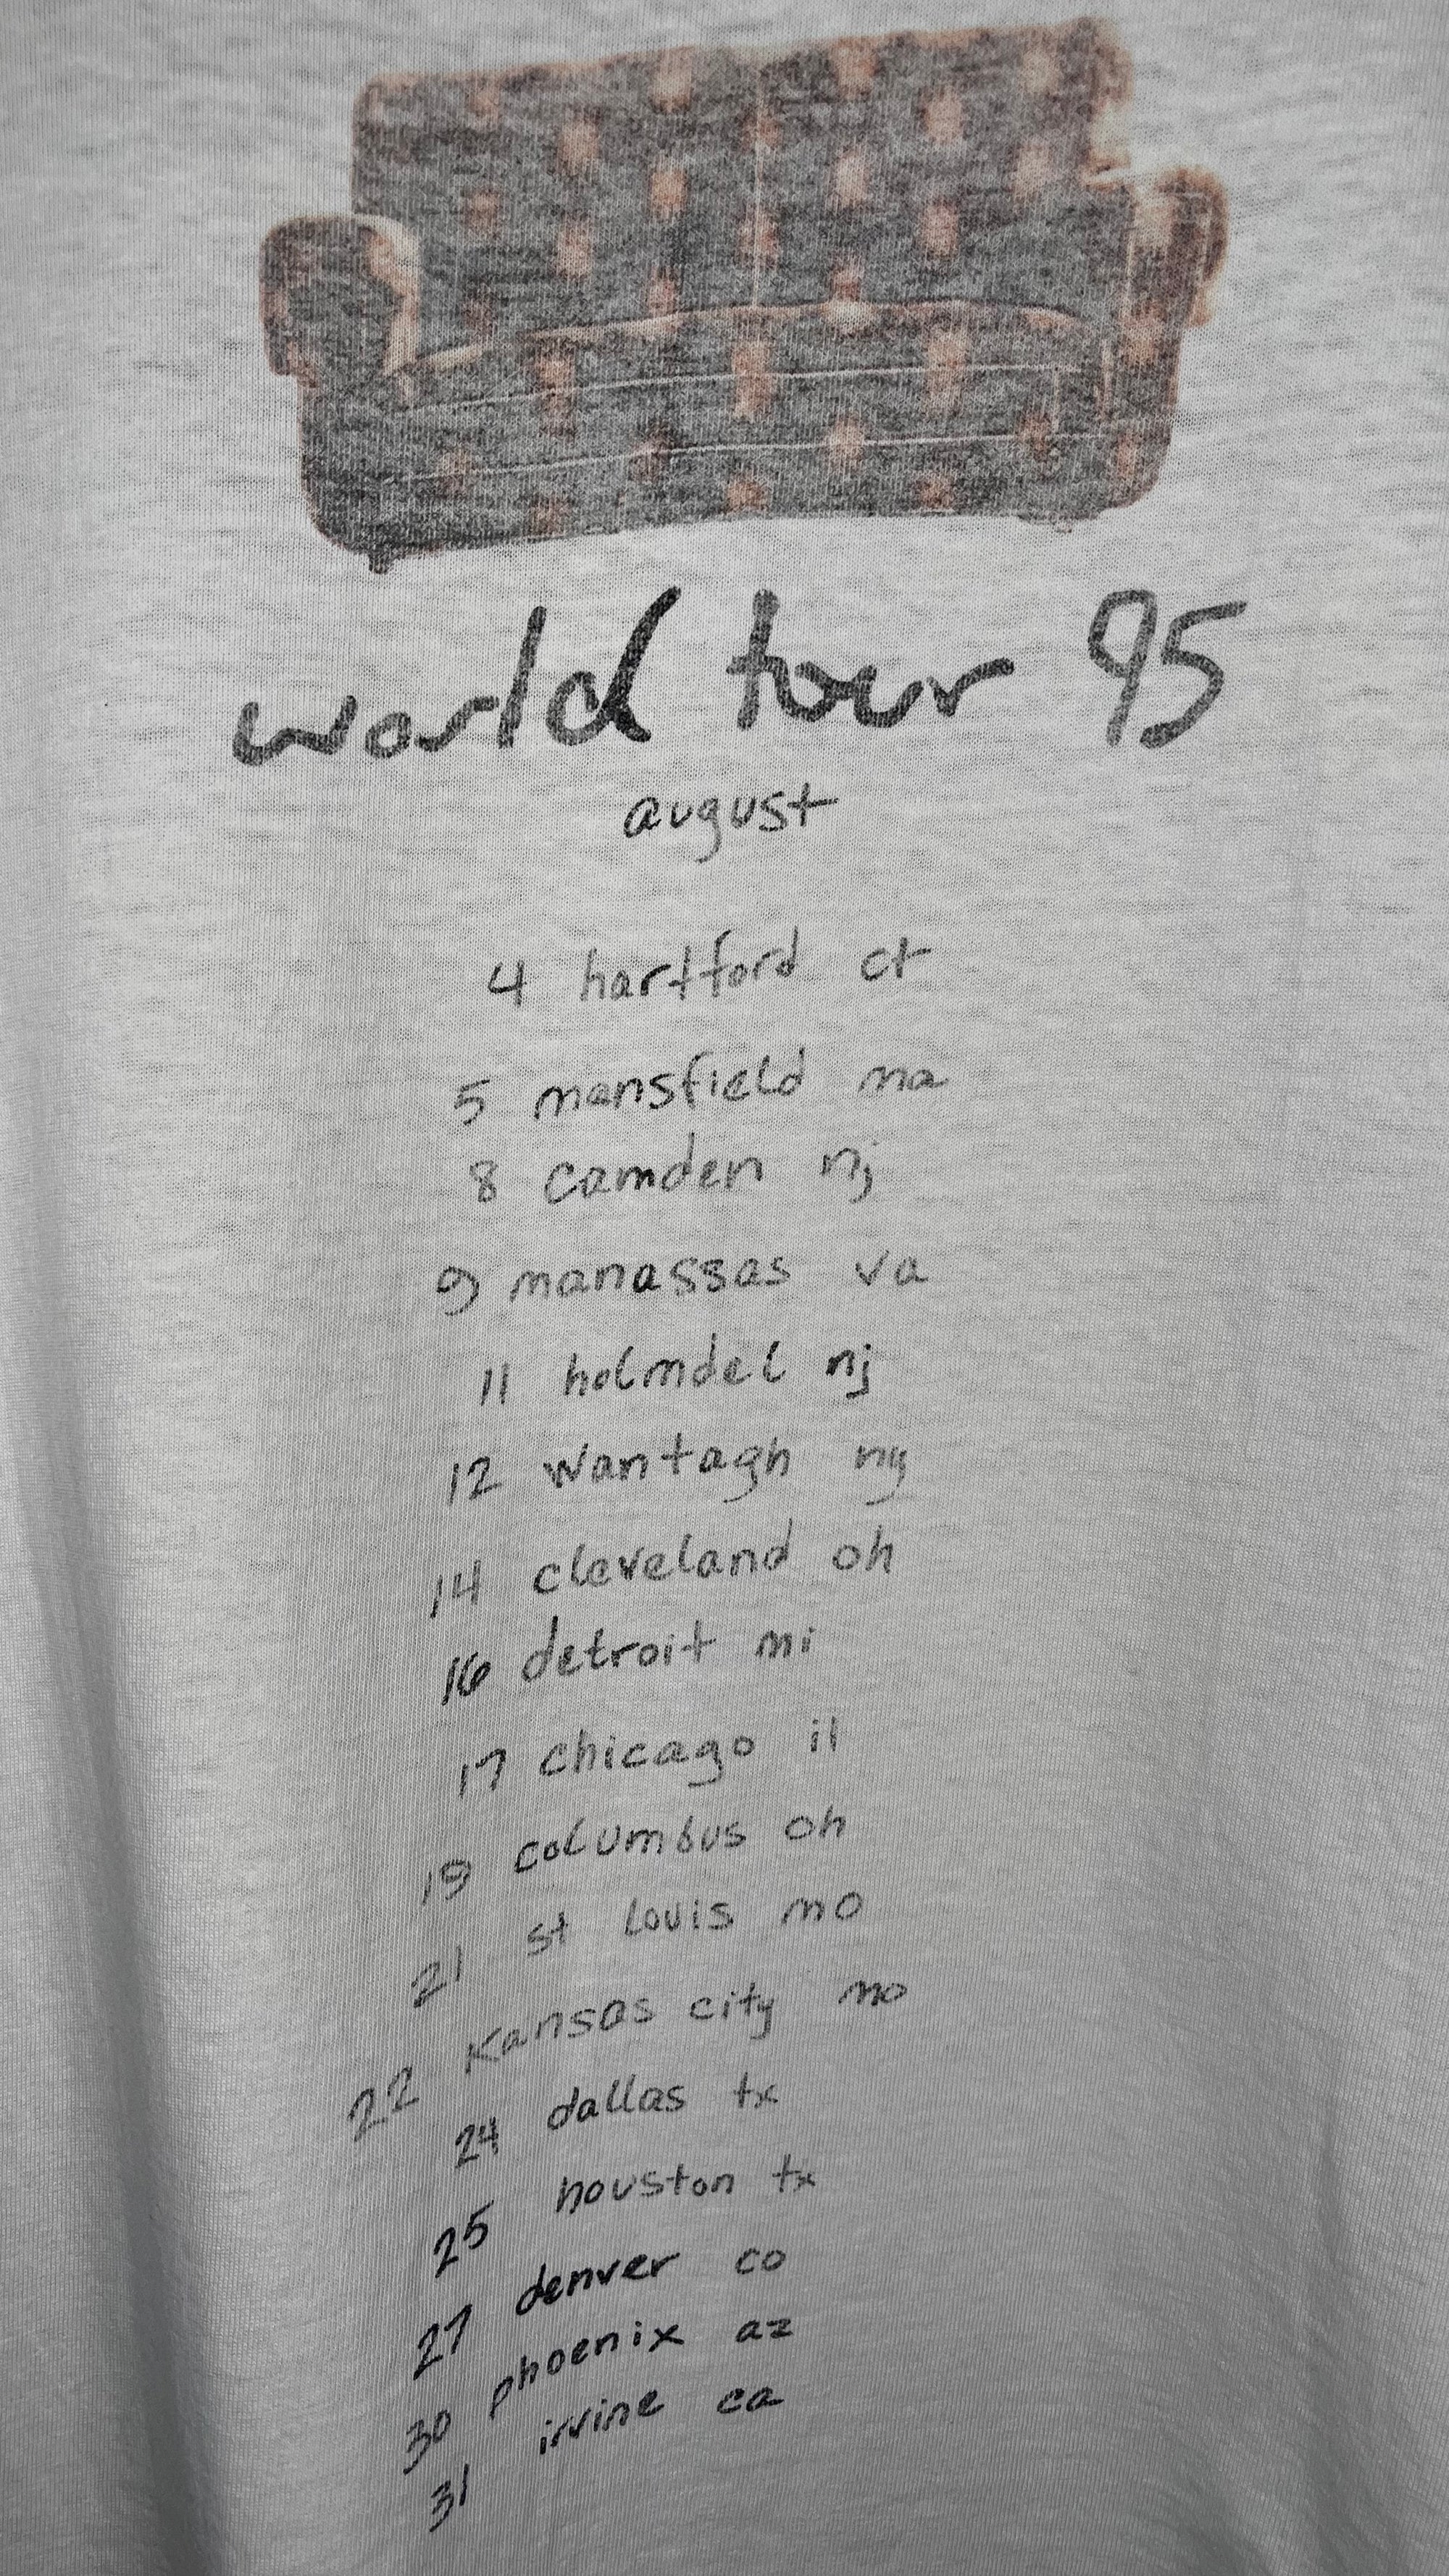 world tour 95
august
4 hartford ct
5 mansfield ma
8 camden nj
9 manassas va
11 holmdel nj
12 wantagh ny
14 cleveland oh
16 detroit mi
17 chicago il
19 columbus oh
21 st louis mo
22 kansas city mo
24 dallas tx
25 houston tx
27 denver co
30 phoenix az
31 irvine ca